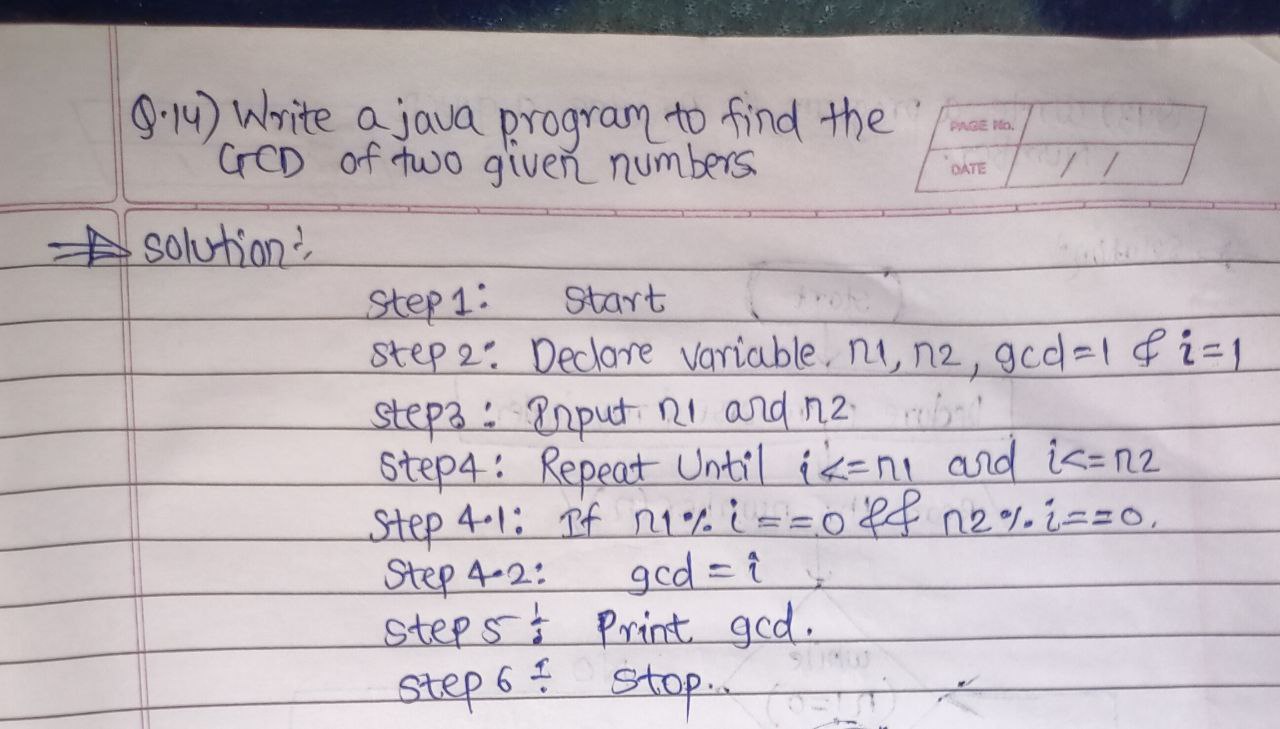 Q.14) Write a java program to find the
GCD of two given numbers
PAGE No.
DATE / /
⇒ solution:
Step 1: Start
Step 2: Declare variable n1, n2, gcd=1 & i=1
Step3: Input n1 and n2
Step4: Repeat Until i<=n1 and i<=n2
Step 4.1: If n1%i==0 && n2%i==0.
Step 4.2: gcd = i
Step 5: Print gcd.
Step 6: Stop..